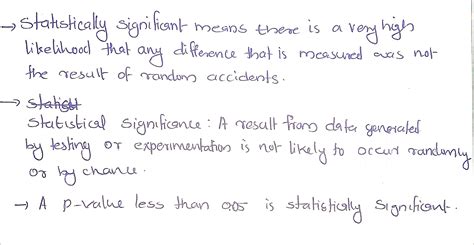 → Statistically significant means there is a very high
likelihood that any difference that is measured was not
the result of random accidents.
→ Statist
Statistical Significance : A result from data generated
by testing or experimentation is not likely to occur randomly
or by chance.
→ A p-value less than 0.05 is statistically significant.